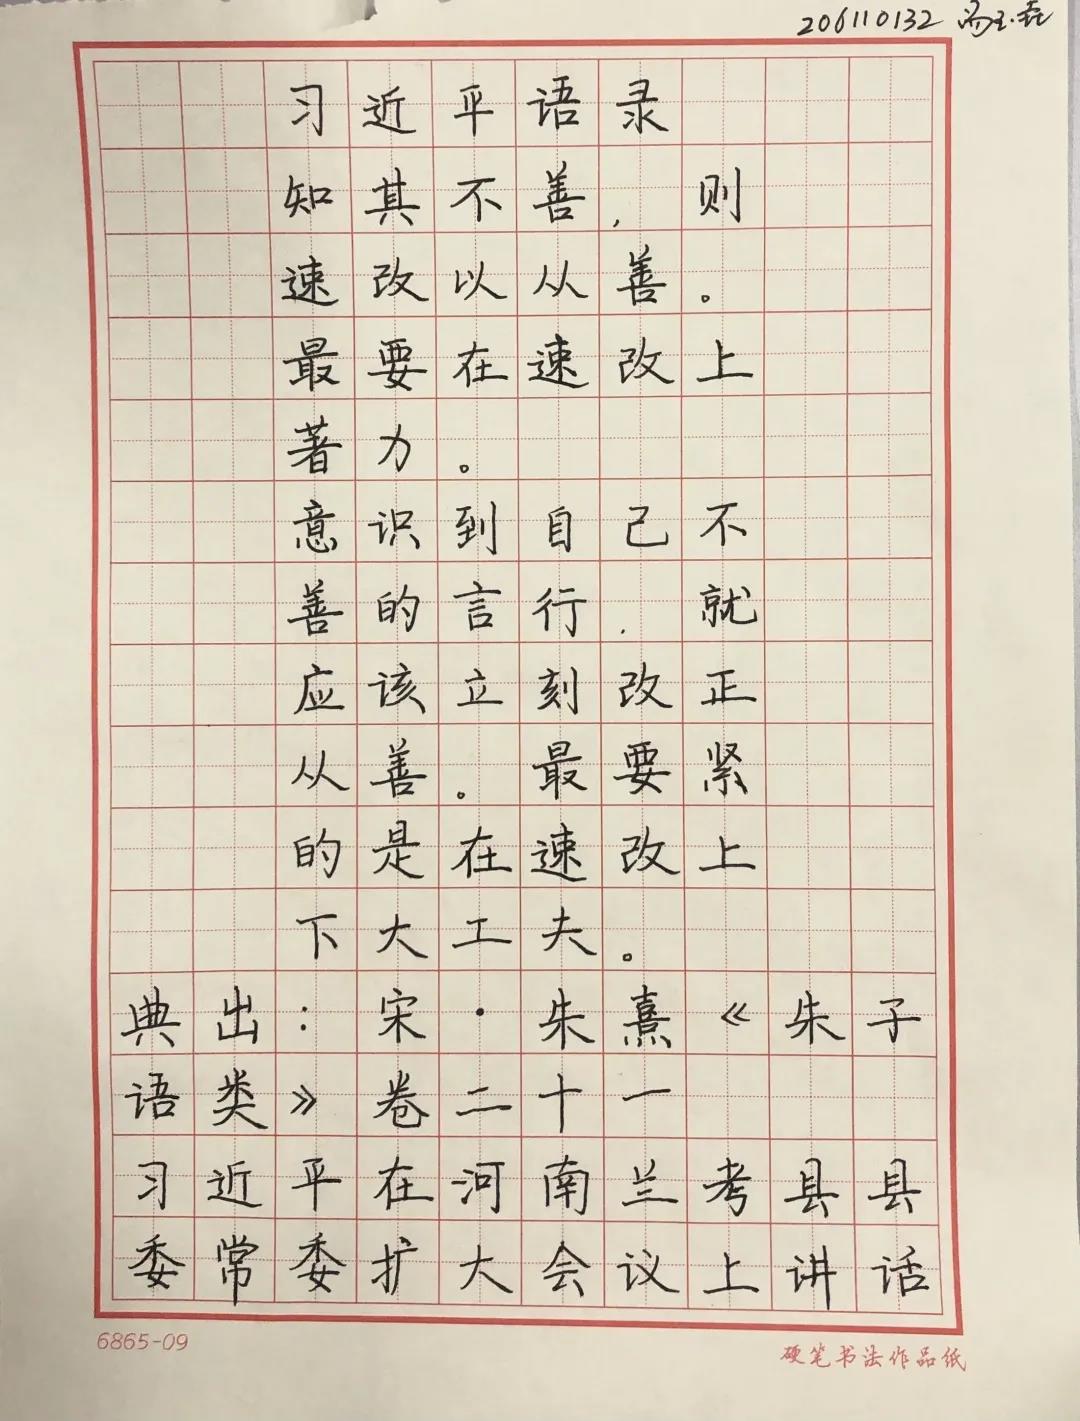 206110132 冯玉磊
习近平语录
知其不善，则
速改以从善。
最要在速改上
著力。
意识到自己不
善的言行，就
应该立刻改正
从善。最要紧
的是在速改上
下大工夫。
典出：宋·朱熹《朱子
语类》卷二十一
习近平在河南兰考县县
委常委扩大会议上讲话
6865-09
硬笔书法作品纸